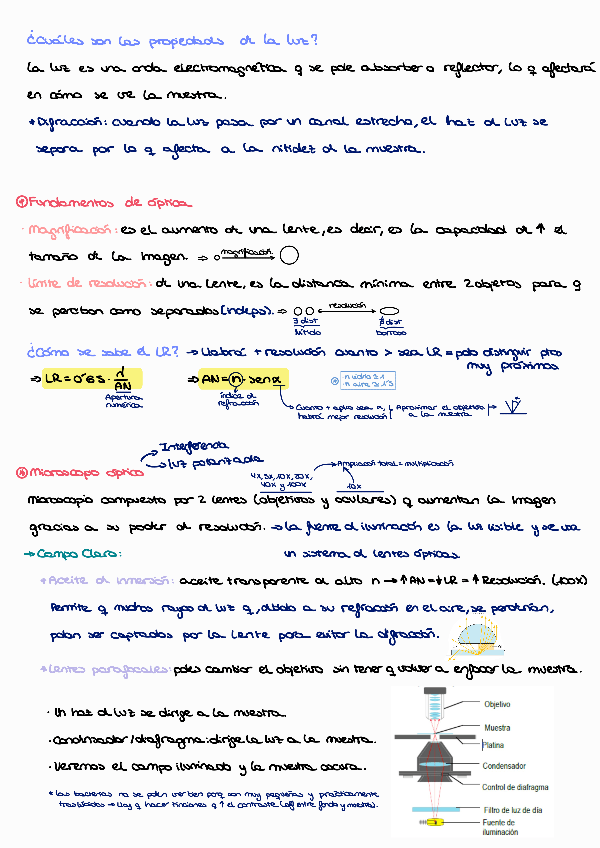 ¿Cuáles son las propiedads de la luz?
La luz es una onda electromagnética q se pde absorber o reflector, lo q afectará
en cómo se ve la muestra.
* Difracción: cuando la luz pasa por un canal estrecho, el haz d luz se
separa por lo q afecta a la nitidez d la muestra.
① Fundamentos de óptica
· Magnificación: es el aumento de una lente, es decir, es la capacidad de ↑ el
tamaño de la imagen. ⇒ magnificación
· Límite de resolución: de una lente, es la distancia mínima entre 2 objetos para q
se perciban como separados (indeps). ⇒ resolución
∃ dist ∄ dist
Nítido borroso
¿Cómo se sabe el LR? → Habrá + resolución cuanto > sea LR = pdo distinguir ptos
muy próximos
⇒ LR = 0'65 · λ/AN ⇒ AN = n · sen α
Apertura
numérica
índice de
refracción
n vidrio ≥ 1
n aire ≥ 1'5
Cuanto + aprox sea n,
habrá mejor resolución
Aproximar el objetivo
a la muestra
Interferencia
luz polarizada
② Microscopio óptico
4x, 5x, 10x, 20x,
40x y 100x
10x
Ampliación total = multiplicación
Microscopio compuesto por 2 lentes (objetivos y oculares) q aumentan la imagen
gracias a su poder de resolución. → La fuente d iluminación es la luz visible y se usa
un sistema d lentes ópticas.
→ Campo Claro:
* Aceite de inmersión: aceite transparente d alto n → ↑AN = ↓LR = ↑Resolución. (100x)
Permite q muchos rayos d luz q, dbido a su refracción en el aire, se perderían,
pdan ser captados por la lente para evitar la difracción.
* Lentes parafocales: pdes cambiar el objetivo sin tener q volver a enfocar la muestra.
· Un haz d luz se dirige a la muestra.
· Condensador/diafragma: dirige la luz a la muestra.
· Veremos el campo iluminado y la muestra oscura.
* Las bacterias no se pdn ver bien porq son muy pequeñas y prácticamente
traslúcidas → Hay q hacer tinciones q ↑ el contraste (dif entre fondo y muestra).
Objetivo
Muestra
Platina
Condensador
Control de diafragma
Filtro de luz de día
Fuente de
iluminación